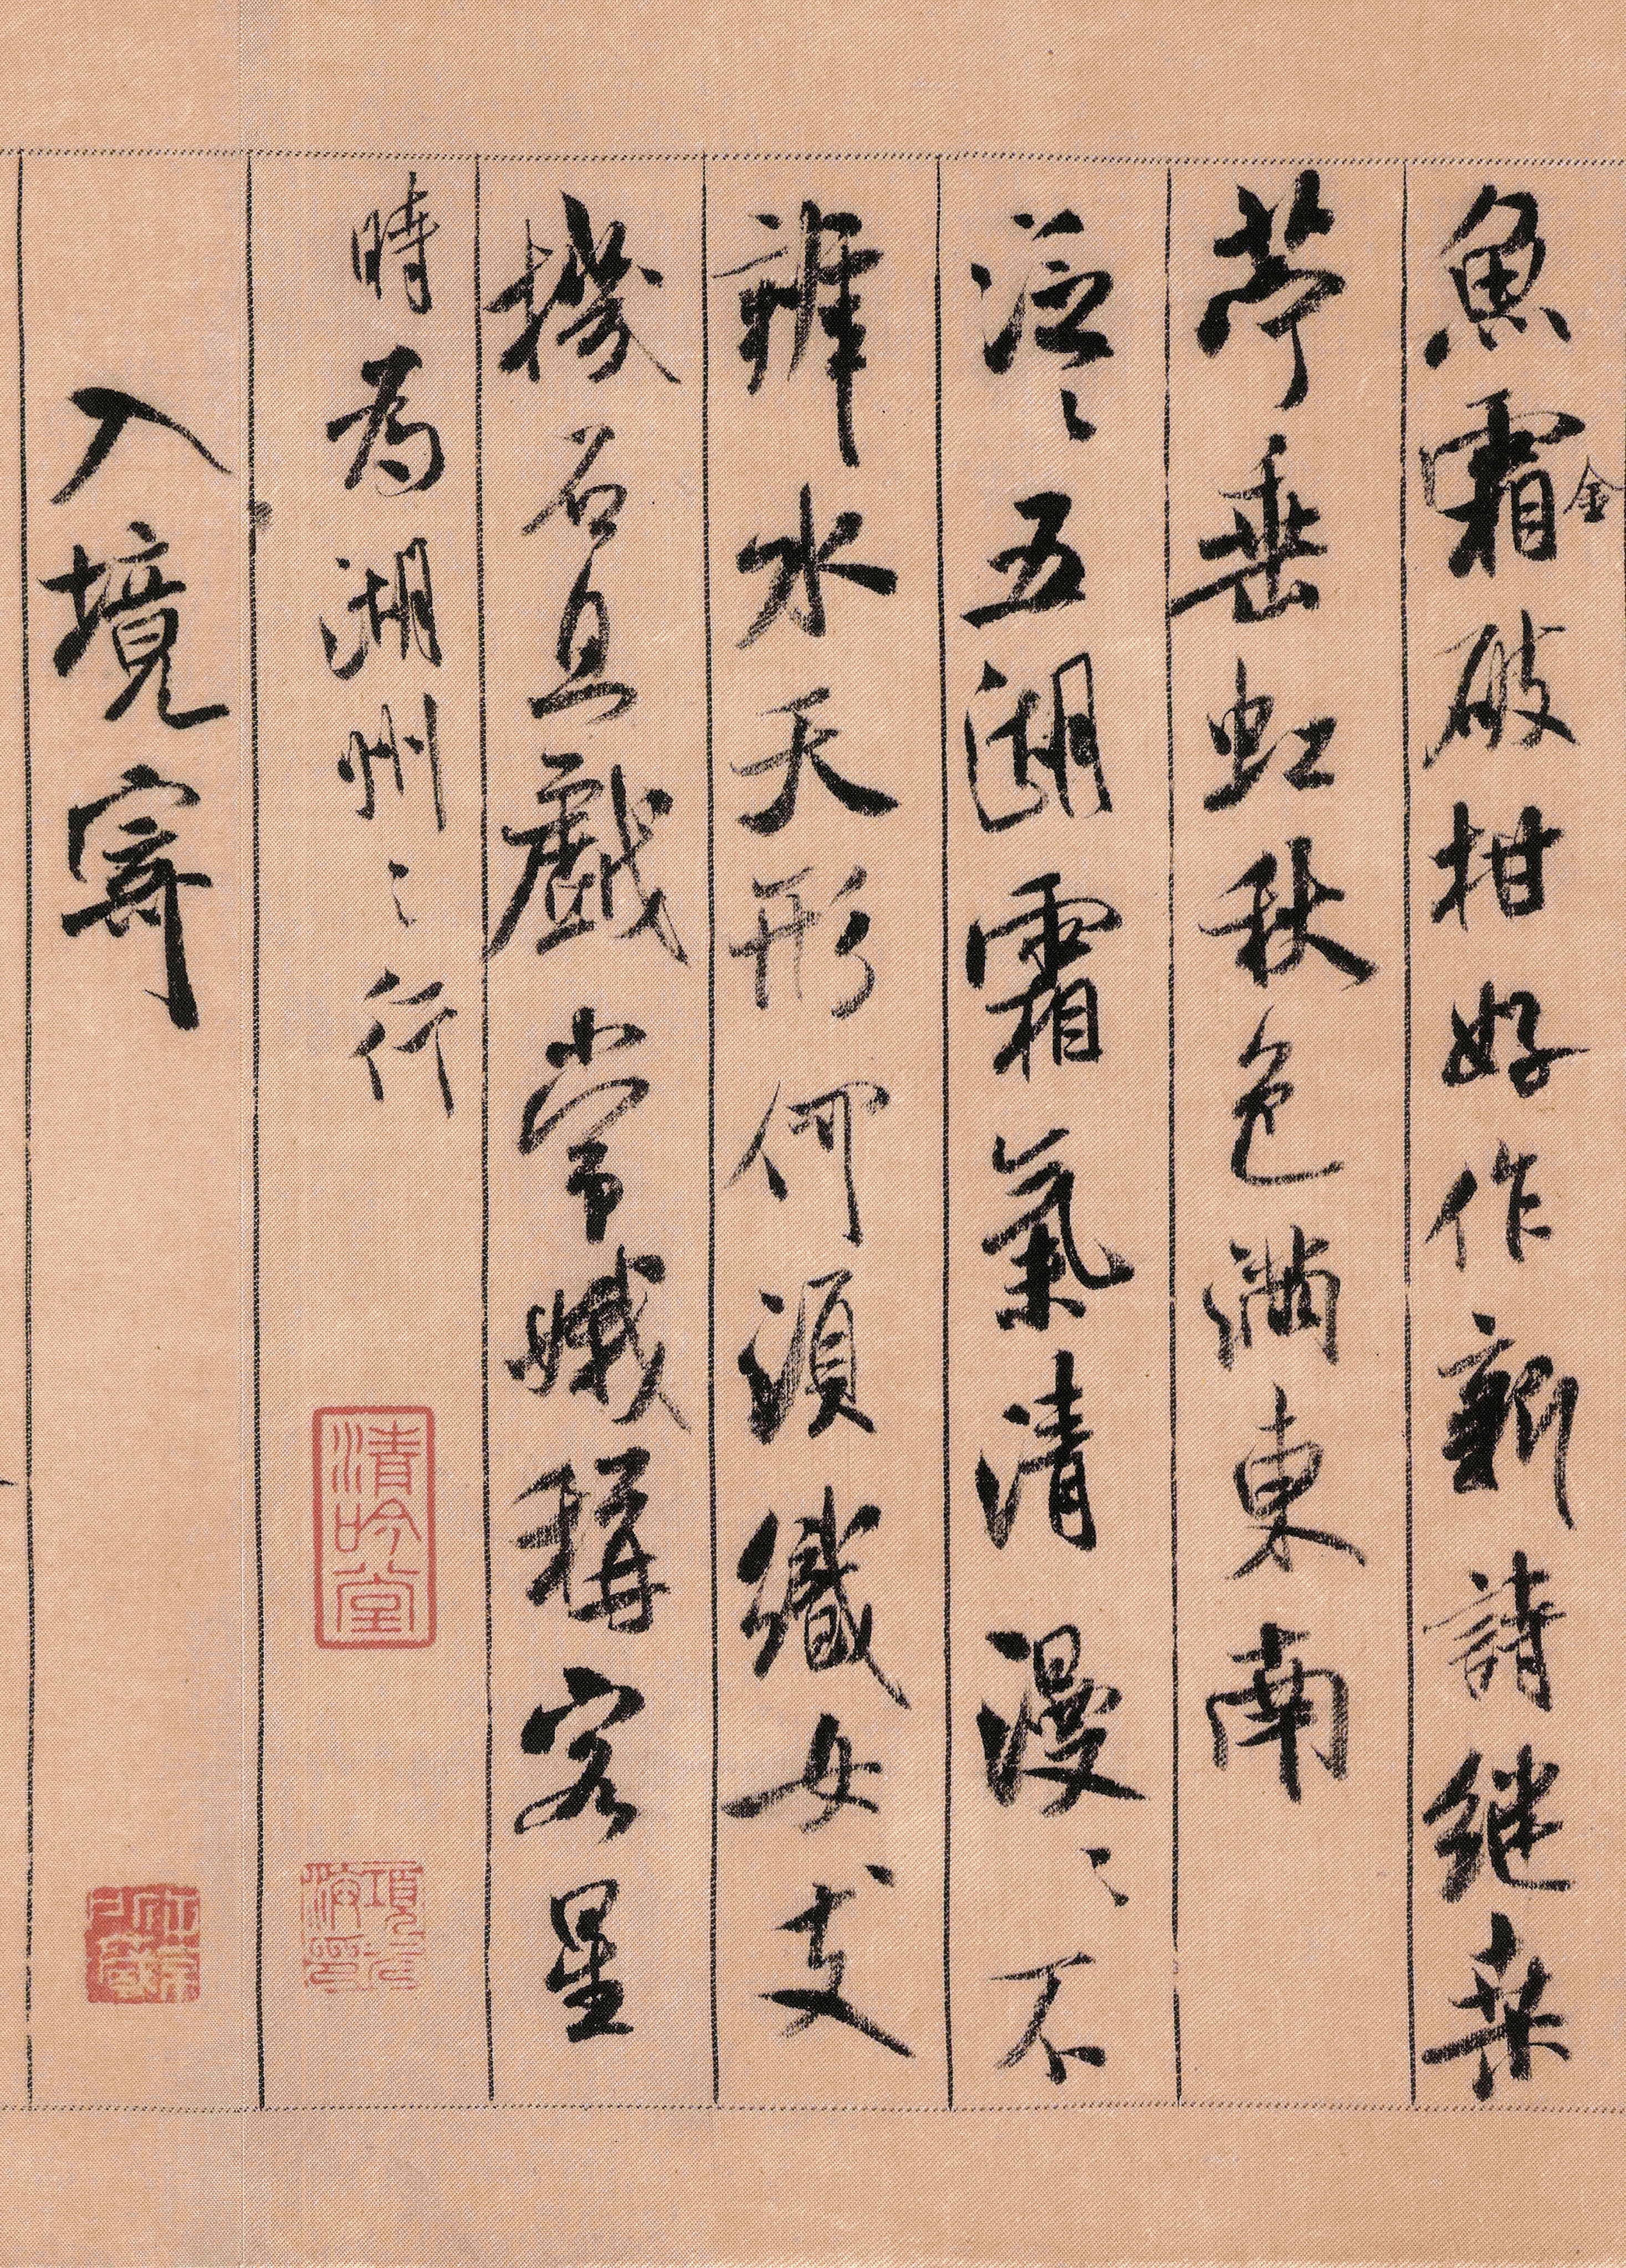 魚霜金破柑好作新詩继桑
苧垂虹秋色滿東南
泛〻五湖霜氣清漫〻不
辨水天形何須織女支
機石且戲常娥稱客星
時為湖州〻行
清吟堂
入境寄